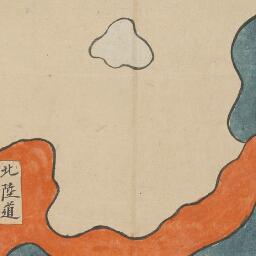 北陸道